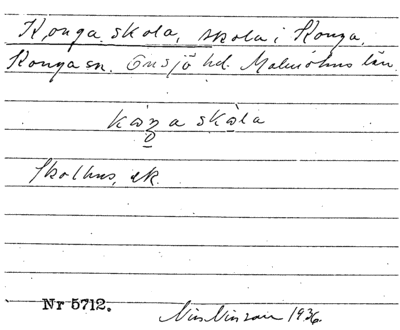 Konga skola, skola i Konga,
Konga sn. Onsjö hd. Malmöhus län.
kåŋa skåla
o
Skolhus, ek.
Nr 5712.
1936.